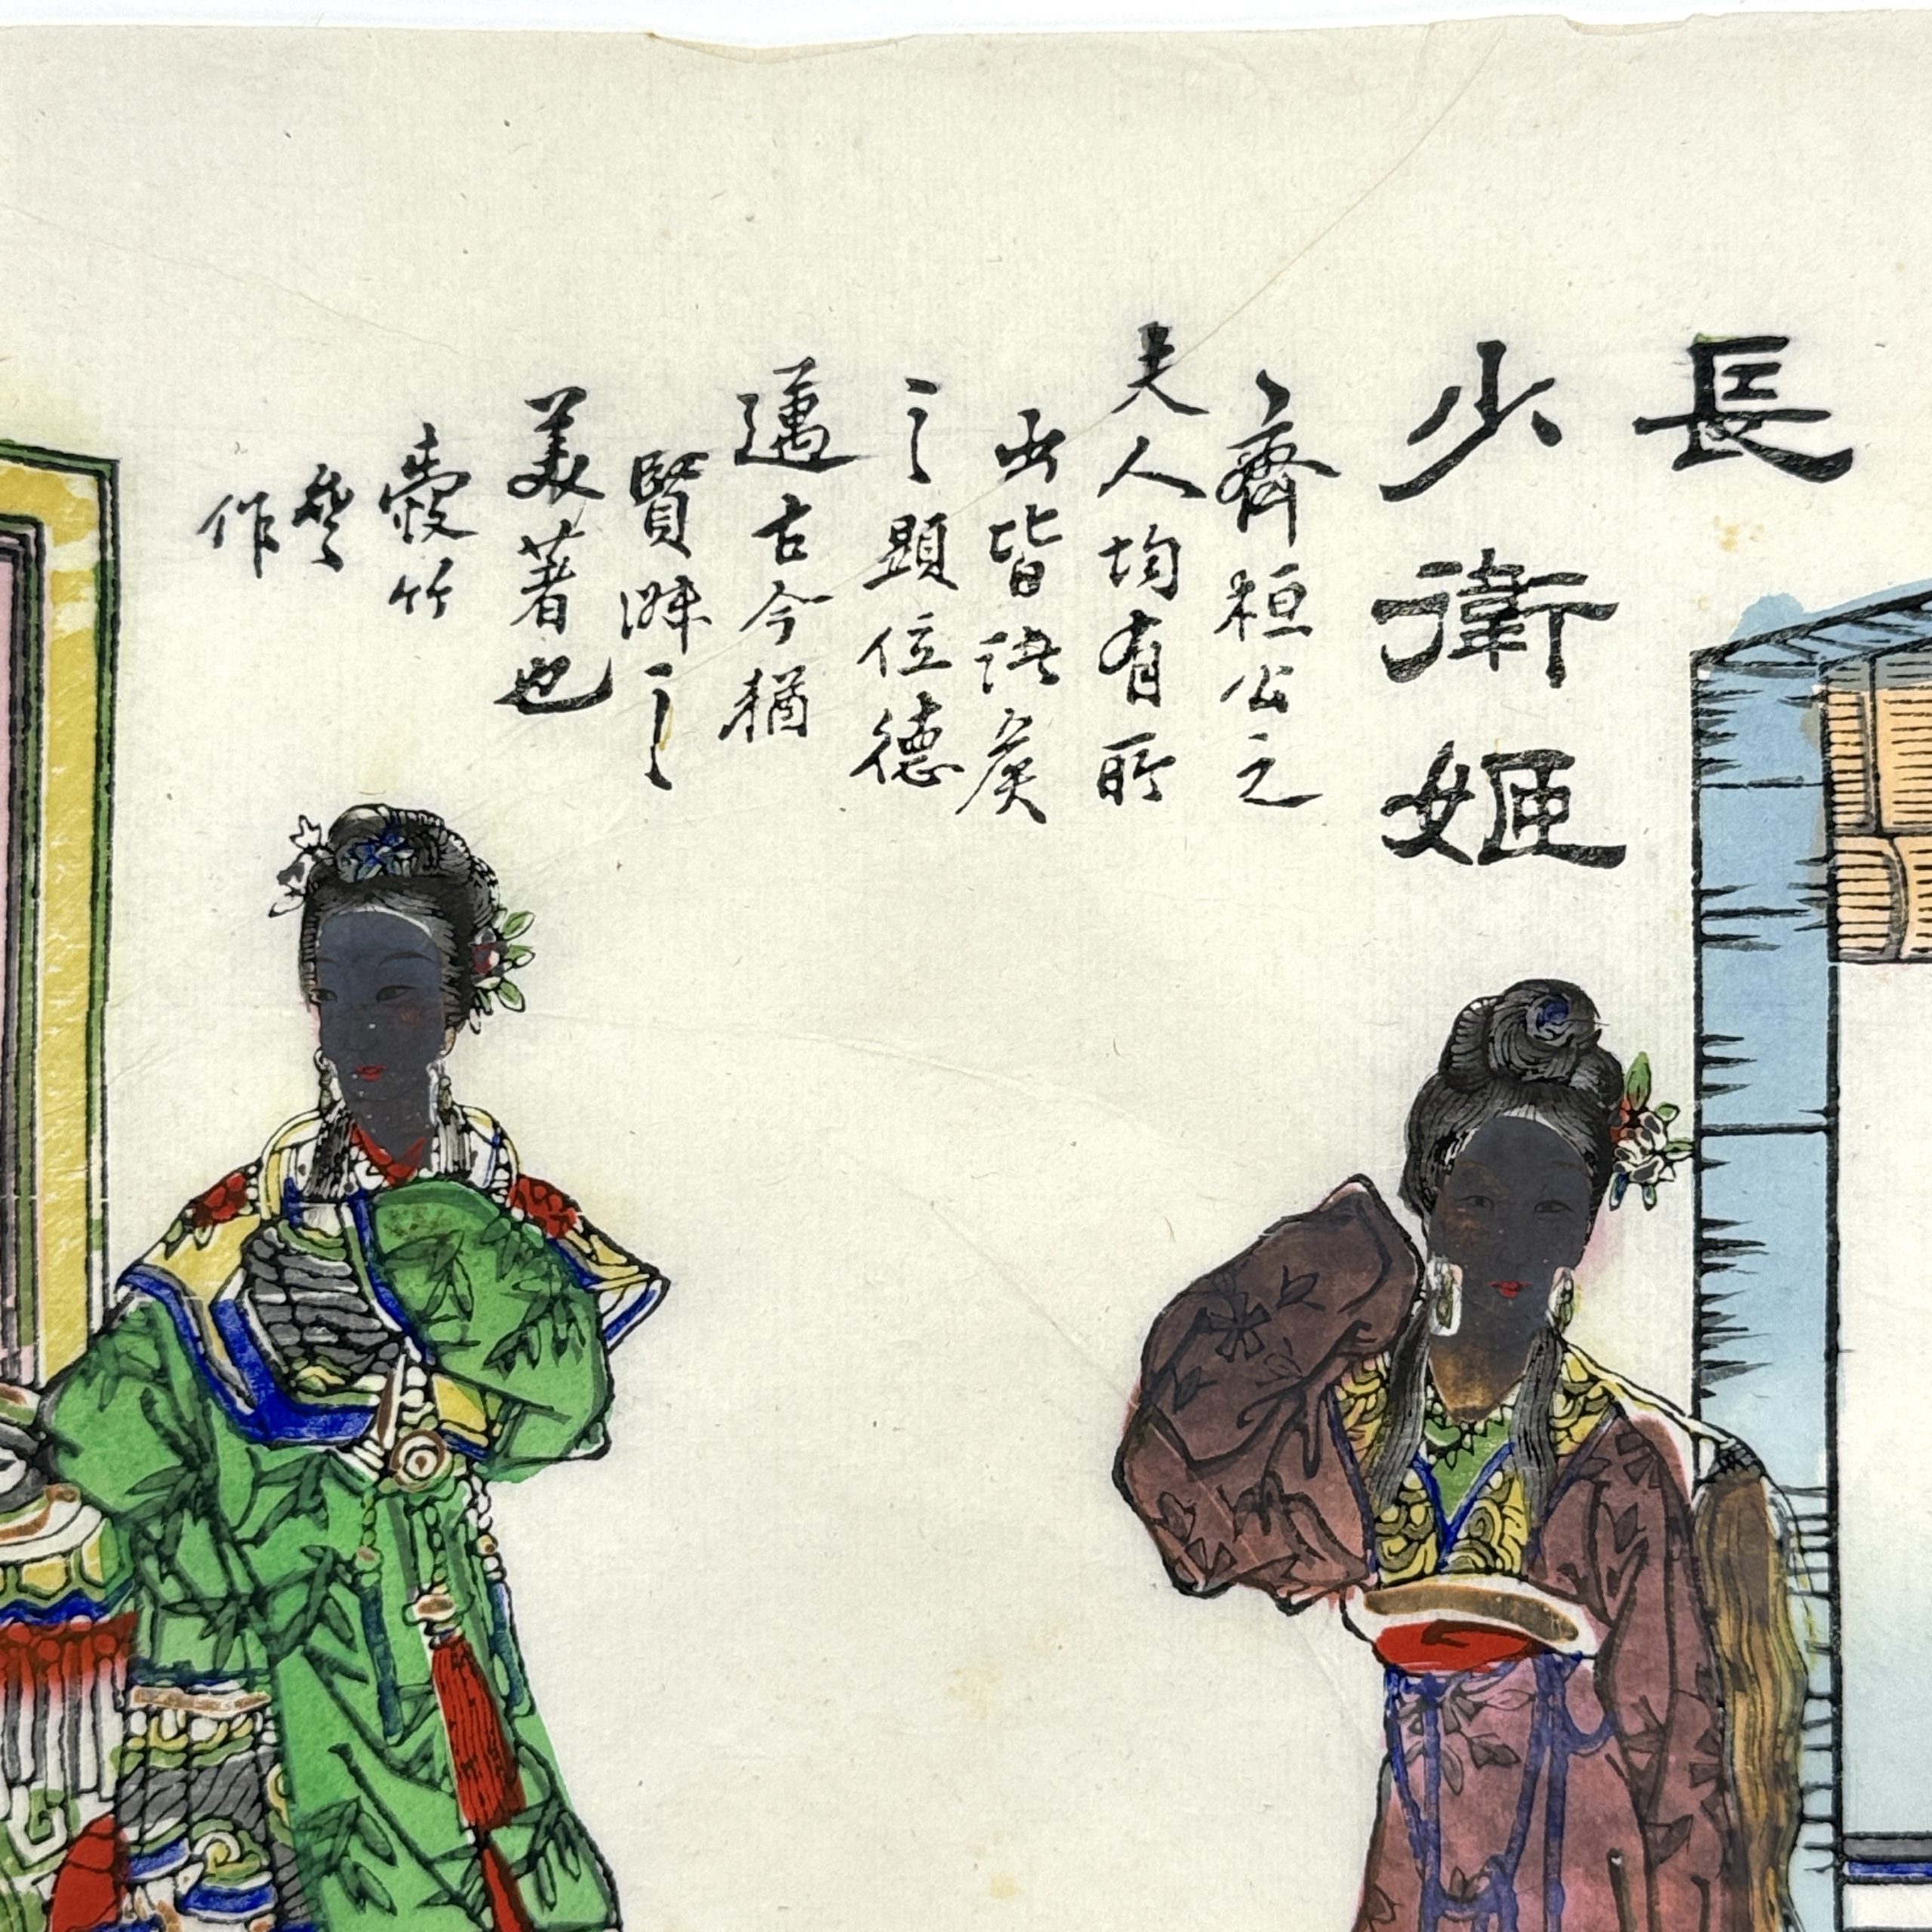 長
少衛姬
齊桓公之
夫人均有所
出皆諸侯
之顯位德
邁古今猶
賢
之
美著也
竹
作